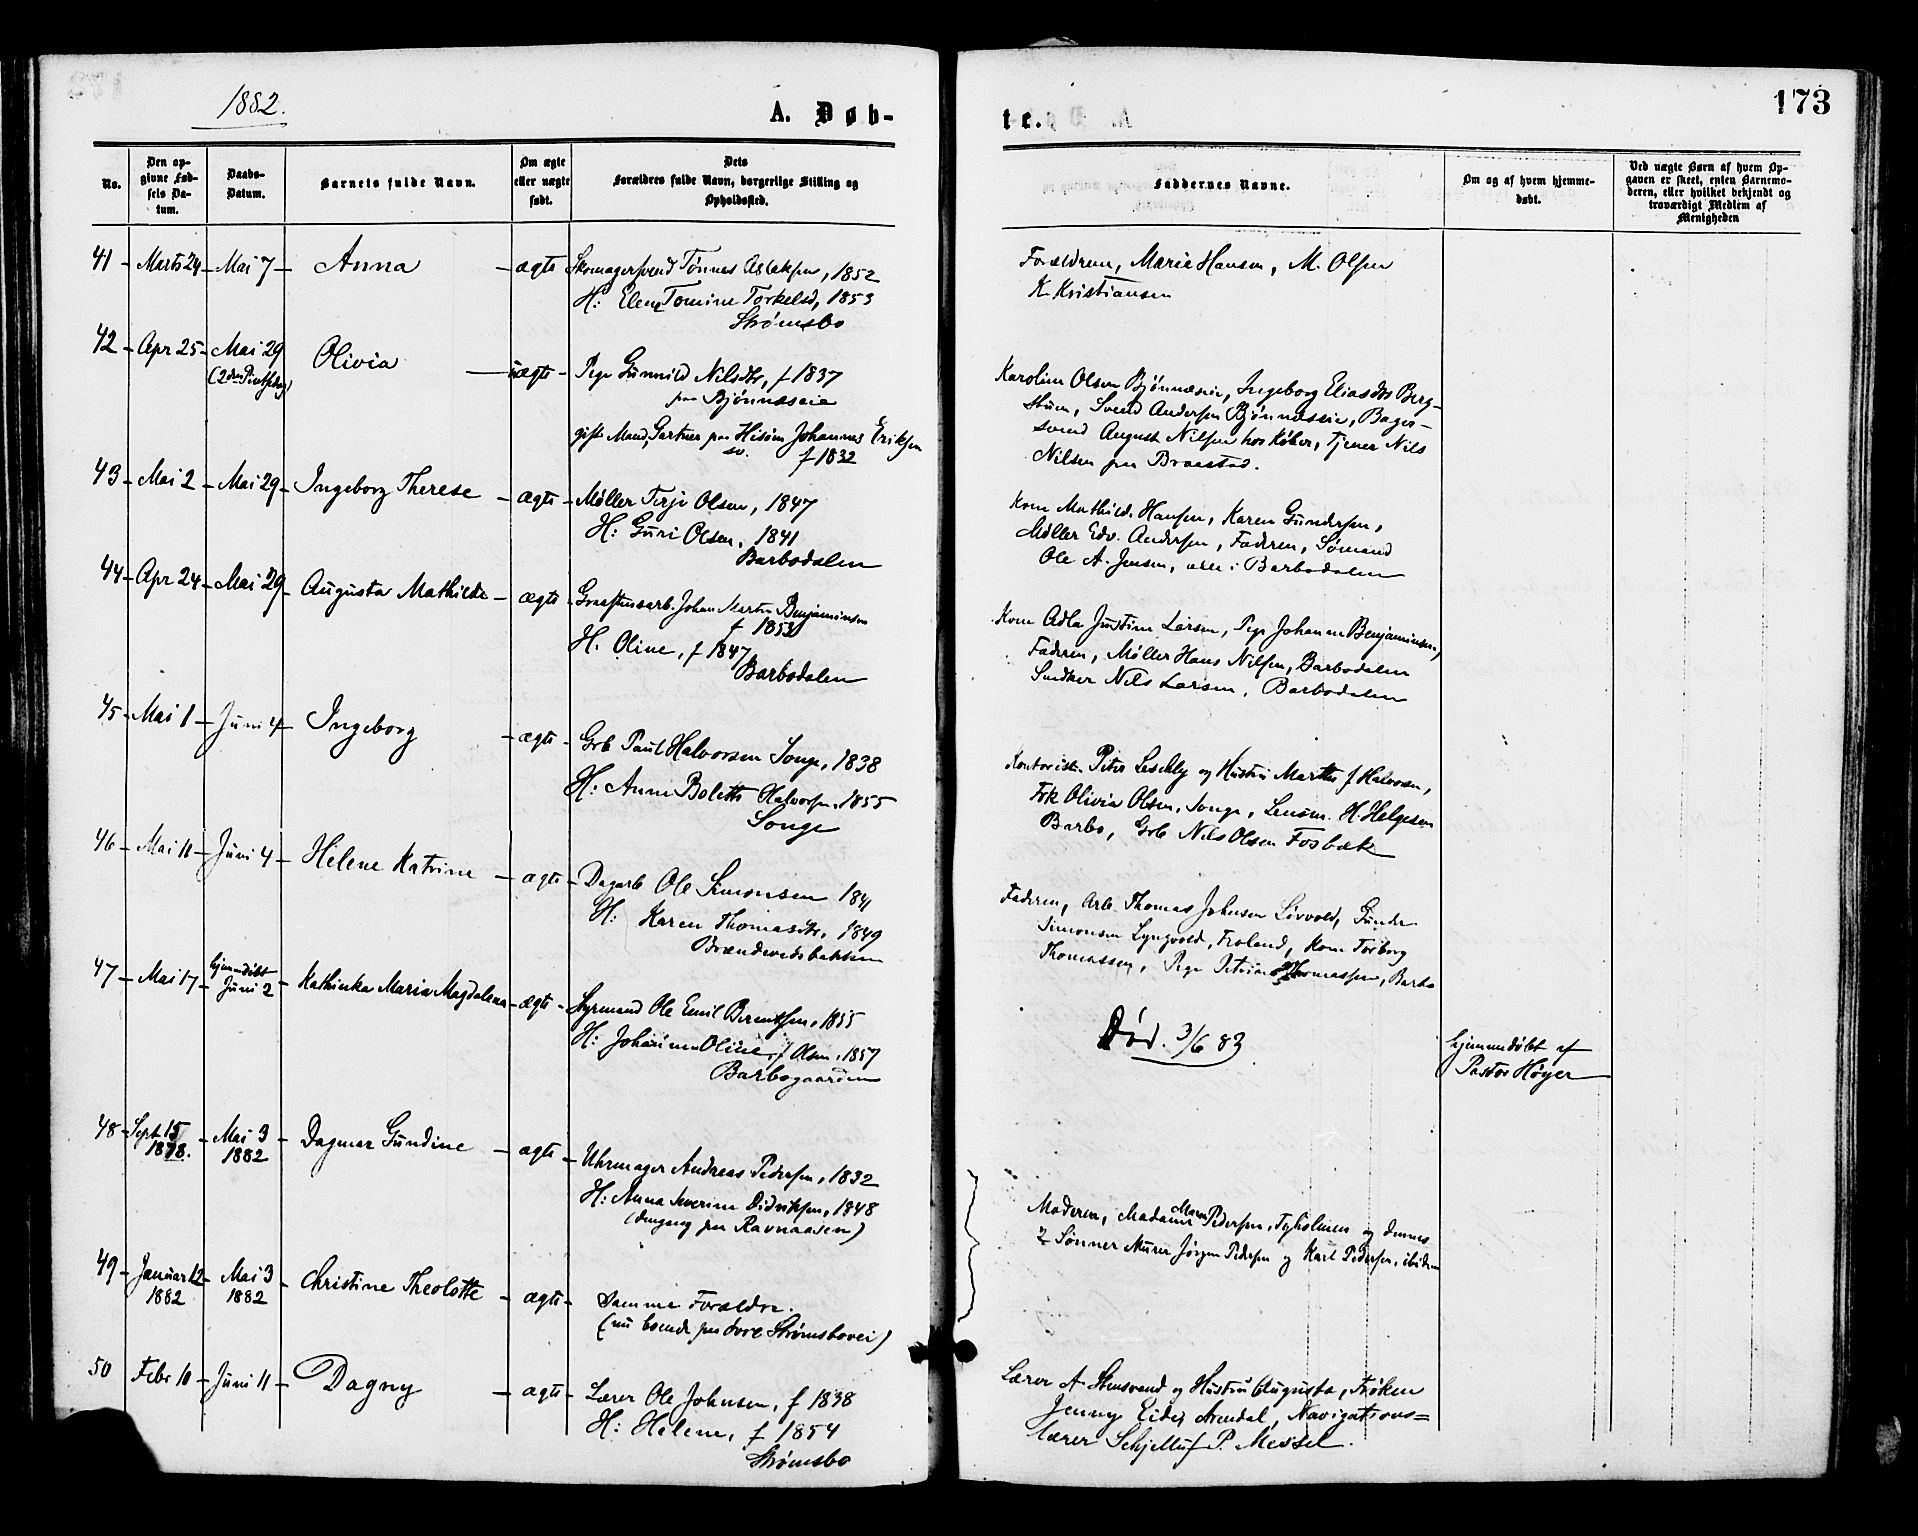 1882.
A. Døb-
No.
Den op-
givne Fød-
sels Da-
tum.
Daabs-
Datum.
Barnets fulde Navn.
Om ægte
eller uægte
født.
Dets
Forældres fulde Navn, borgerlige Stilling og
Opholdssted.
41 - Marts 24 - Mai 7 - Anna - ægte - Tønnes Aslaksen, 1852
H: Elene Tomine Torkelsd, 1853
Strømsbo
42 - Apr 25 - Mai 29 Olivia - uægte - Pige Gunnild Nilsdtr, f 1837
paa Bjønnæseie
gift Mand, Gartner paa Hisøen Johannes Eriksen
f 1832
43 - Mai 2 - Mai 29 - Ingeborg Therese - ægte - Møller Terje Olsen, 1847
H: Guri Olsen, 1841
Barbodalen
44 - Apr 24 - Mai 29 - Augusta Mathilde - ægte - Johan Martin Benjaminsen
f 1853
H. Oline, f 1847
Barbodalen
45 - Mai 1 - Juni 4 - Ingeborg - ægte - Grb Paul Halvorsen Songe, 1838
H: Anne Bolette Halvorsen, 1855
Songe
46 - Mai 11 - Juni 4 - Helene Katrine - ægte - Dagarb Ole Simonsen 1841
H: Karen Thomasdtr, 1849
Brændevedsbakken
47 - Mai 17 - hjemmedøbt
Juni 2 - Kathinka Maria Magdalena - ægte - Styrmand Ole Emil Berentsen, 1855
H: Johanne Oline, f Olsen, 1857
Barbogaarden
48 - Sept 15
1878. - Mai 3
1882 - Dagmar Gundine - ægte - Uhrmager Andreas Pedersen, 1832
H: Anna Severine Didriksen, 1848
(dengang paa Ravnaasen)
49 - Januar 12
1882 - Mai 3
1882 - Christine Theolotte - ægte - Samme Forældre.
(nu boende paa Strømsbovei)
50 Febr 10 - Juni 11 - Dagny - ægte - Lærer Ole Johnsen, f 1838
H: Helene, f 1854
Strømsbo
te.
173
Faddernes Navne.
Om og af hvem hjemme-
døbt.
Ved uægte Børn af hvem Op-
gaven er skeet, enten Barnemo-
deren, eller hvilket bekjendt og
troværdigt Medlem af
Menigheden
Forældrene, Marie Hansen, M. Olsen
K Kristiansen
Karoline Olsen Bjønnæseie, Ingeborg Eliasdtr Berg-
Svend Andersen Bjønnæseie, Bager-
svend August Nilsen hos Køber, Tjener Nils
Nilsen paa Braastad.
Kone Mathilde Hansen, Karen Gundersen,
Møller Edv. Andersen, Faderen, Sømand
Ole A. Jensen, alle i Barbodalen
Kone Adla Justine Larsen, Pige Johanne Benjaminsen,
Faderen, Møller Hans Nilsen, Barbodalen
Snedker Nils Larsen, Barbodalen
Kontorist Peter og Hustru Marthe f Halvorsen,
Frk Olivia Olsen, Songe, Lensm. H. Helgesen
Barbo, Grb Nils Olsen Fosbæk
Faderen, Arb. Thomas Johnsen Livvold, Gunder
Simonsen Lyngvold, Froland, Kone Torborg
Thomassen, Pige Petrine Thomassen, Barbo
Død. 3/6 83
hjemmedøbt af
Pastor Høyer
Moderen, Madame Maren Pedersen, Tyholmen og dennes
2 Sønner Murer Jørgen Pedersen og Karl Pedersen, ibidem
Lærer A. Stensvand og Hustru Augusta, Frøken
Jenny Eide, Arendal, Navigations=
lærer P. Messel.